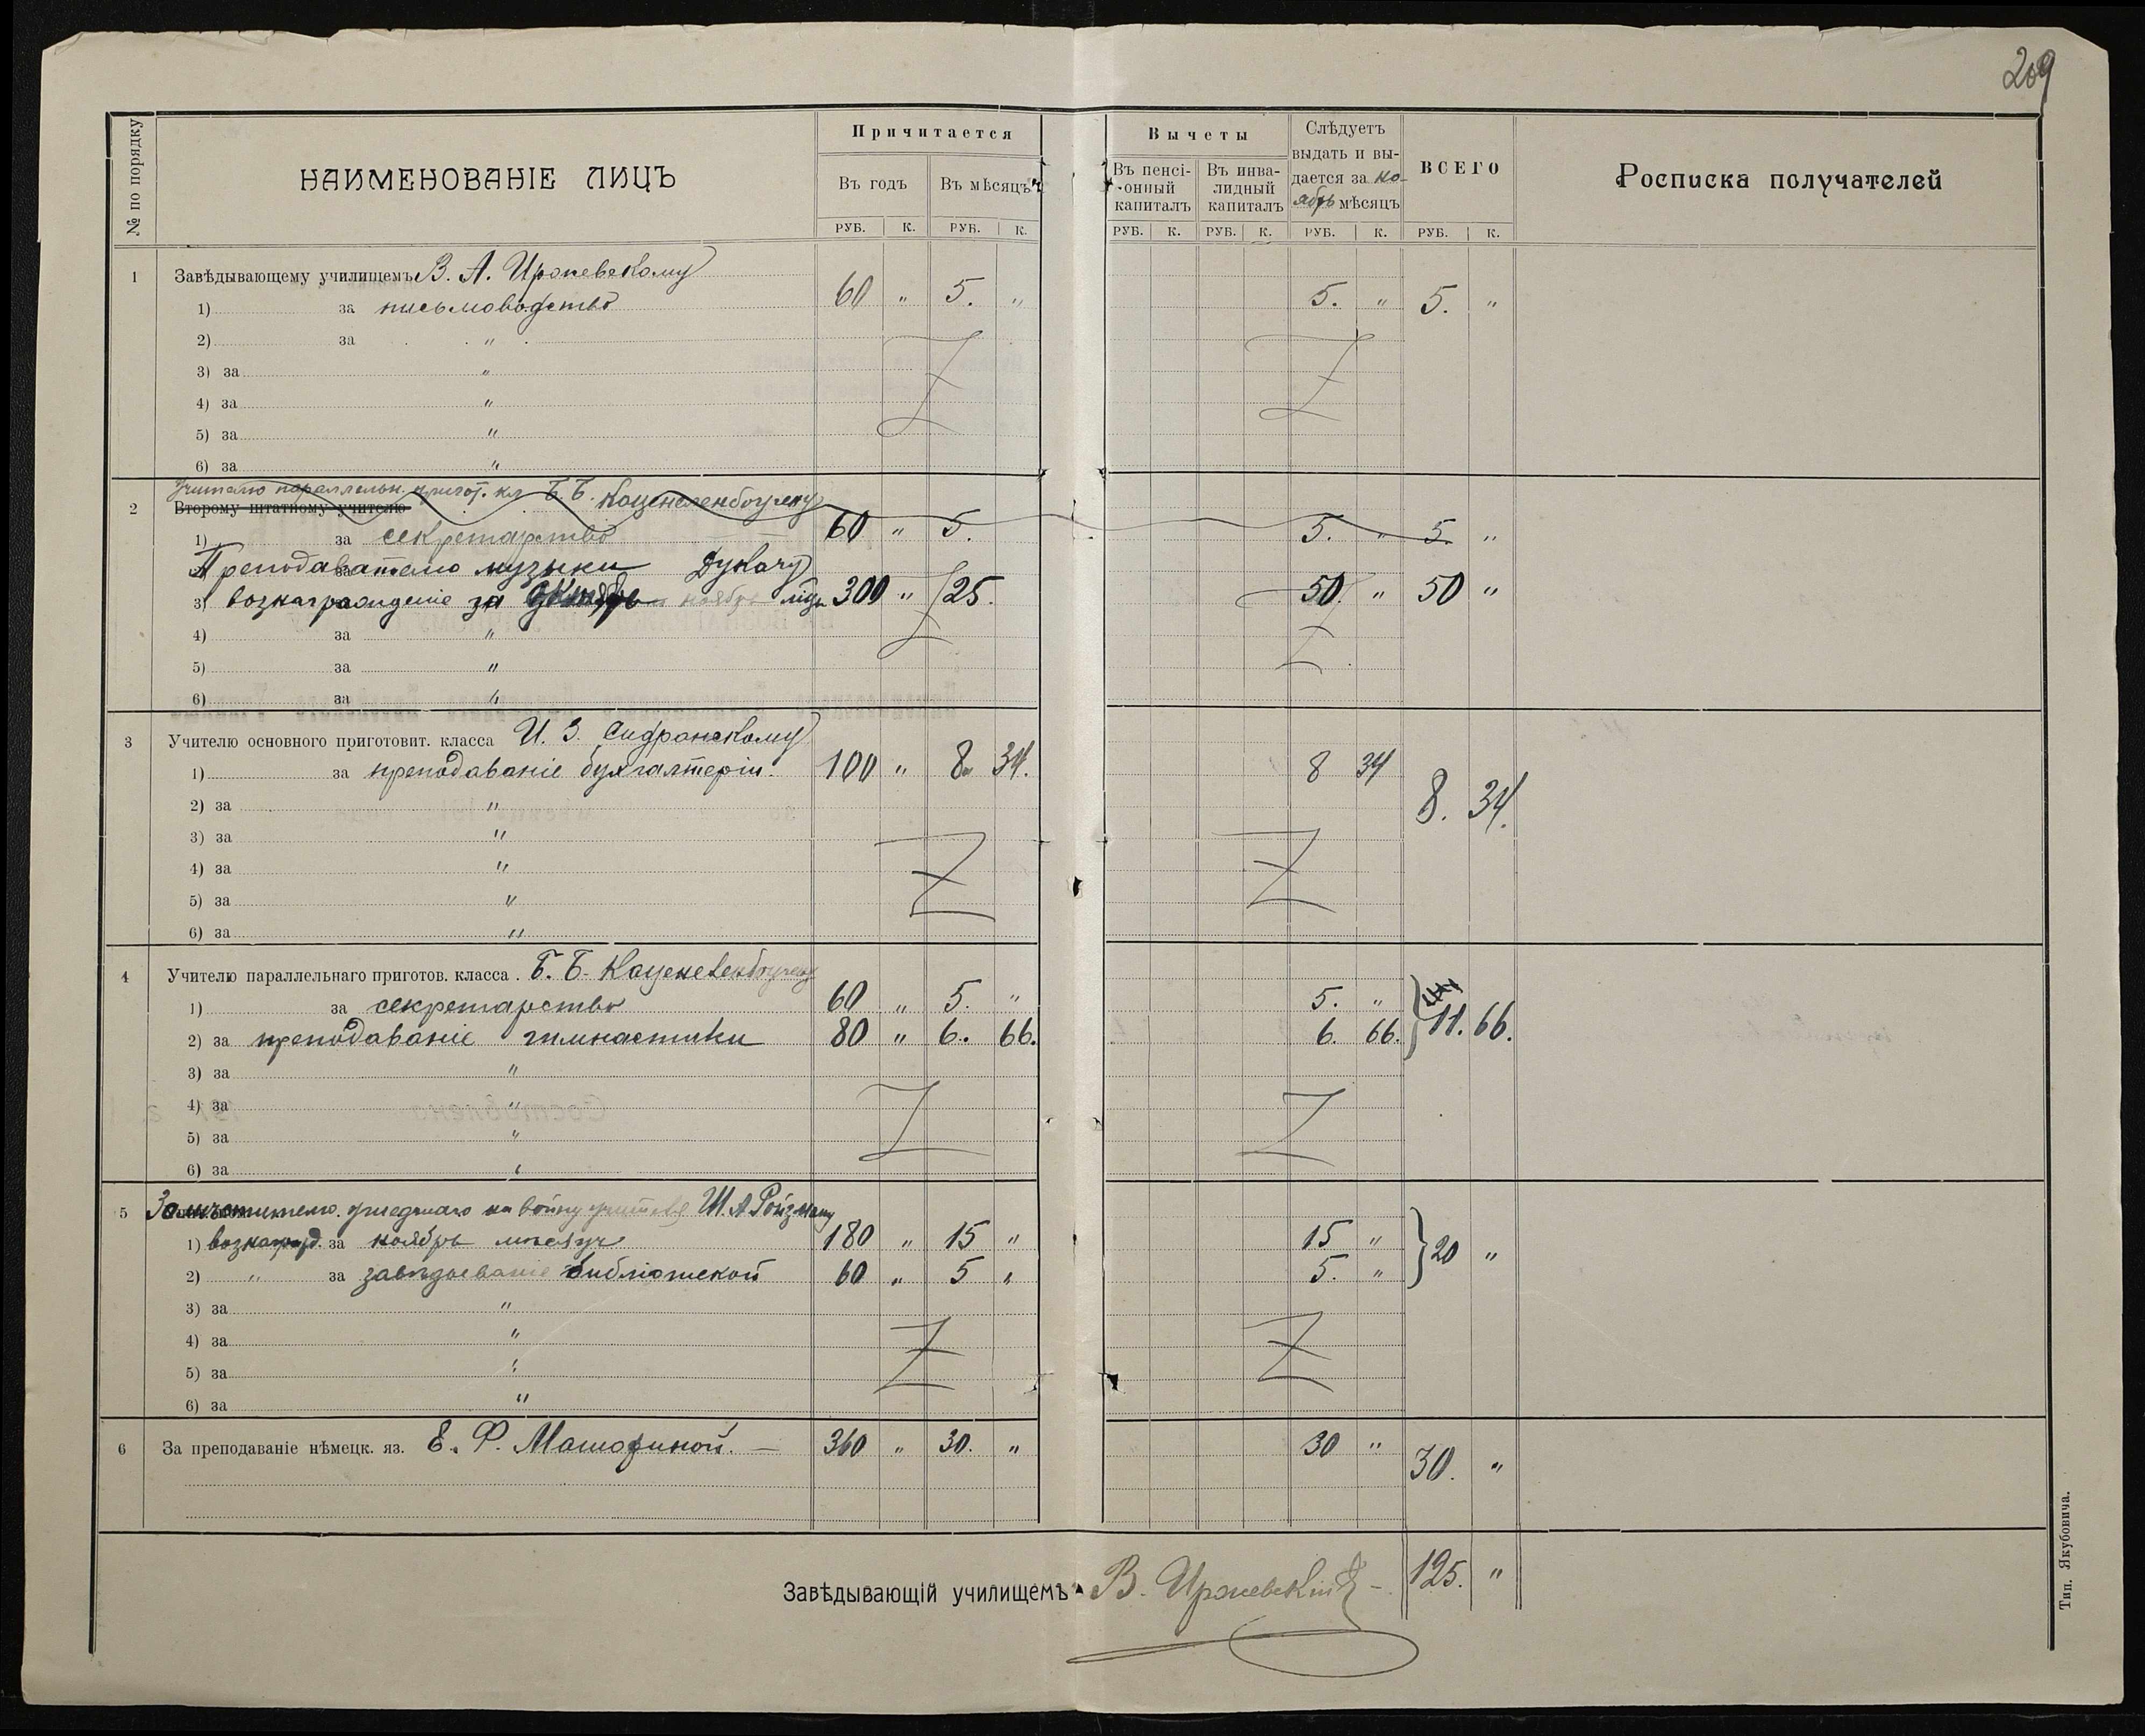 209
№ по порядку
НАИМЕНОВАНІЕ ЛИЦЪ
Причитается
Въ годъ
Въ мѣсяцъ
РУБ. К. РУБ. К.
Вычеты
Въ пенсі-
онный
капиталъ
Въ инва-
лидный
капиталъ
Слѣдуетъ
выдать и вы-
дается за но-
ябрь мѣсяцъ
ВСЕГО
Росписка получателей
РУБ. К. РУБ. К. РУБ. К. РУБ. К.
1 Завѣдывающему училищемъ В. А.
1) за письмоводство 60 " 5. " 5. " 5. "
2) за "
3) за "
4) за "
5) за "
6) за "
Учителю параллельн. пригот. кл Б. Б. Каценеленбогену
2 Второму штатному учителю
1) за секретарство 60 " 5. 5. " 5. "
Преподавателю музыки Дукачу
3) вознагражденіе за ноябрь мѣс. 300 " 25. 50. " 50 "
4) за "
5) за "
6) за "
3 Учителю основного приготовит. класса И. З. Сидранскому
1) за преподаваніе бухгалтеріи. 100 " 8 34. 8 34 8. 34.
2) за "
3) за "
4) за "
5) за "
6) за "
4 Учителю параллельнаго приготов. класса. Б. Б. Каценеленбогену
1) за секретарство 60 " 5. " 5. "
2) за преподаваніе гимнастики 80 " 6. 66. 6. 66. 11. 66.
3) за "
4) за "
5) за "
6) за "
5 Замѣстителю ушедшаго на войну учителя Ш. А Ройзману
1) вознагражд. за ноябрь мѣсяцъ 180 " 15 " 15 " 20 "
2) " за завѣдываніе библіотекой 60 " 5 " 5. "
3) за "
4) за "
5) за "
6) за "
6 За преподаваніе нѣмецк. яз. Е. Ф. 360 " 30. " 30 " 30. "
125. "
Завѣдывающій училищемъ В.
Тип. Якубовича.